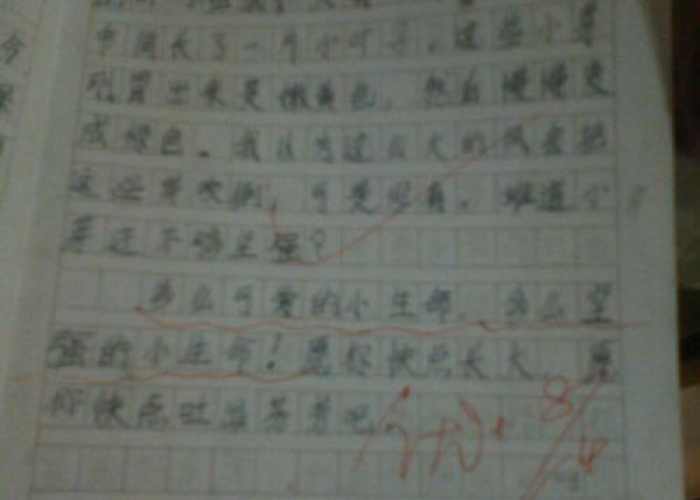 中间长了一个小叶子,这些小芽
刚冒出来是嫩黄色,然后慢慢变
成绿色。我认为这么大的风会把
这些芽吹倒,可是没有。难道小
芽还不够坚强?
多么可爱的小生命,多么坚
强的小生命!愿你快点长大,愿
你快点吐出芬芳吧。
8/4